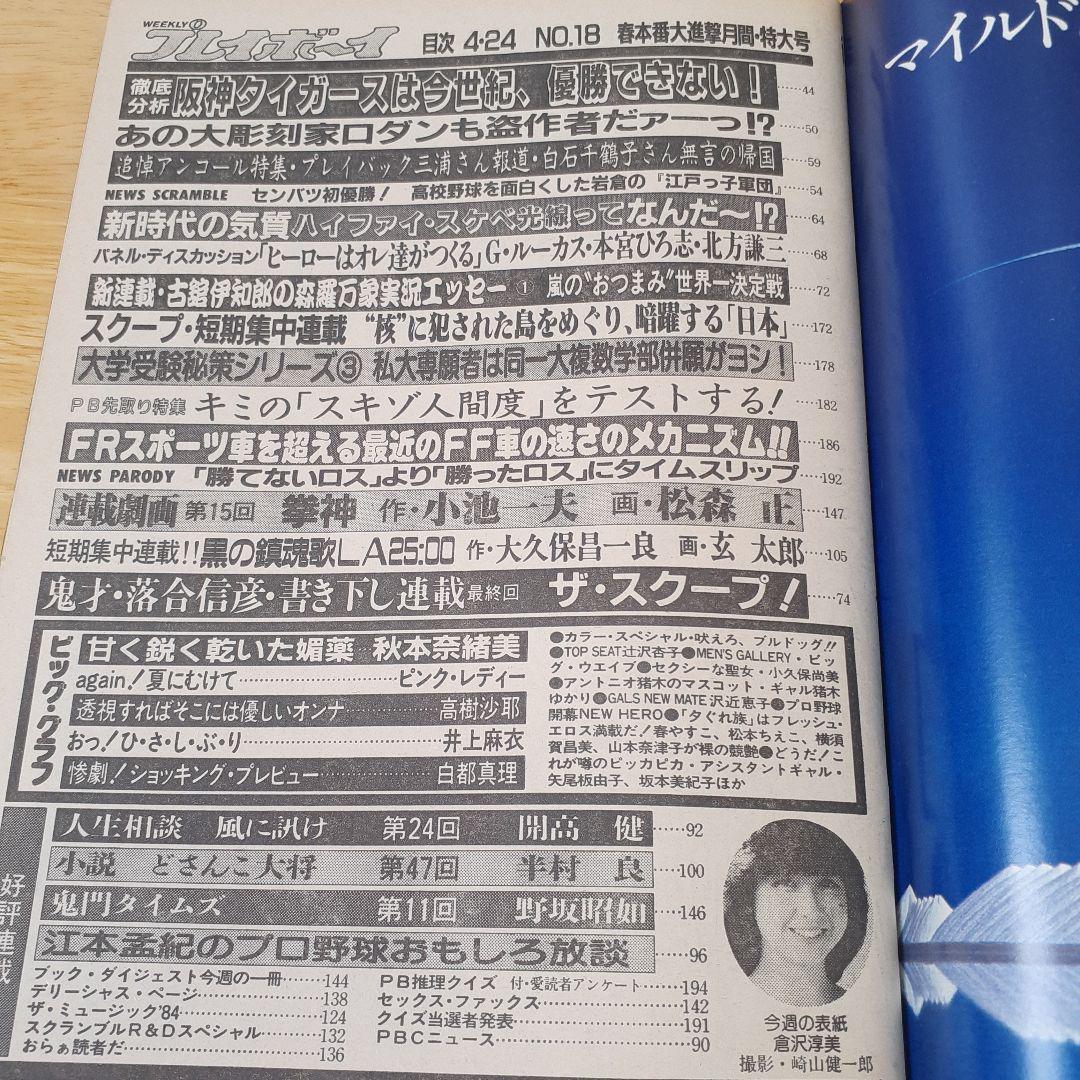 WEEKLY
プレイボーイ 目次 4・24 NO.18 春本番大進撃月間・特大号
徹底分析 阪神タイガースは今世紀、優勝できない! 44
あの大彫刻家ロダンも盗作者だァーっ!? 50
追悼アンコール特集・プレイバック三浦さん報道・白石千鶴子さん無言の帰国 59
NEWS SCRAMBLE センバツ初優勝! 高校野球を面白くした岩倉の『江戸っ子軍団』 54
新時代の気質 ハイファイ・スケベ光線ってなんだ〜!? 64
パネル・ディスカッション「ヒーローはオレ達がつくる」G・ルーカス・本宮ひろ志・北方謙三 68
新連載・古舘伊知郎の森羅万象実況エッセー① 嵐の“おつまみ”世界一決定戦 72
スクープ・短期集中連載 “核”に犯された島をめぐり、暗躍する「日本」 172
大学受験秘策シリーズ③ 私大専願者は同一大複数学部併願がヨシ! 178
PB先取り特集 キミの「スキゾ人間度」をテストする! 182
FRスポーツ車を超える最近のFF車の速さのメカニズム!! 186
NEWS PARODY 「勝てないロス」より「勝ったロス」にタイムスリップ 192
連載劇画 第15回 拳神 作・小池一夫 画・松森 正 147
短期集中連載!! 黒の鎮魂歌LA25:00 作・大久保昌一良 画・玄 太郎 105
鬼才・落合信彦・書き下し連載 最終回 ザ・スクープ! 74
ビッグ・グラフ
甘く鋭く乾いた媚薬 秋本奈緒美
again!夏にむけて ピンク・レディー
透視すればそこには優しいオンナ 高樹沙耶
おっ!ひ・さ・し・ぶ・り 井上麻衣
惨劇!ショッキング・プレビュー 白都真理
●カラー・スペシャル・吠えろ、ブルドッグ!!
●TOP SEAT辻沢杏子●MEN'S GALLERY・ビッ
グ・ウエイブ●セクシーな聖女・小久保尚美
●アントニオ猪木のマスコット・ギャル猪木
ゆかり●GALS NEW MATE沢近恵子●プロ野球
開幕NEW HERO●「夕ぐれ族」はフレッシュ・
エロス満載だ!春やすこ、松本ちえこ、横須
賀昌美、山本奈津子が裸の競艶●どうだ!こ
れが噂のピッカピカ・アシスタントギャル・
矢尾板由子、坂本美紀子ほか
好評連載
人生相談 風に訊け 第24回 開高 健 92
小説 どさんこ大将 第47回 半村 良 100
鬼門タイムズ 第11回 野坂昭如 146
江本孟紀のプロ野球おもしろ放談 96
ブック・ダイジェスト今週の一冊 144
デリーシャス・ページ 138
ザ・ミュージック'84 124
スクランブルR&Dスペシャル 132
おらぁ読者だ 136
PB推理クイズ 付・愛読者アンケート 194
セックス・ファックス 142
クイズ当選者発表 191
PBCニュース 90
今週の表紙
倉沢淳美
撮影・崎山健一郎
マイルド